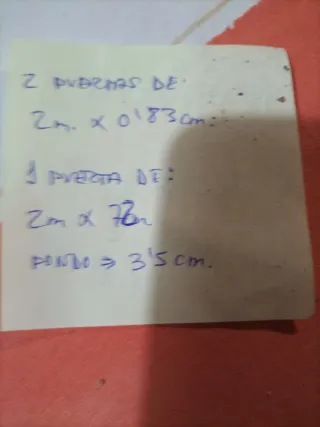 2 PUERTAS DE:
2m. x 0'83 cm.
1 PUERTA DE:
2m x
FONDO => 3'5 cm.